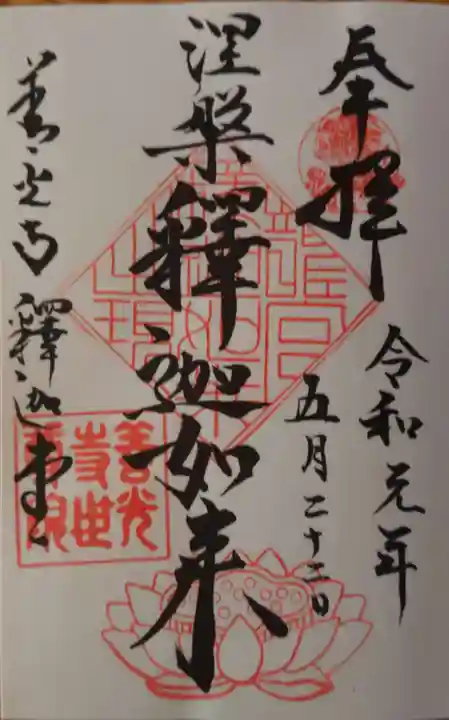 奉拝
令和元年
五月二十三日
涅槃釋迦如来
善光寺釋迦堂
善光
寺世